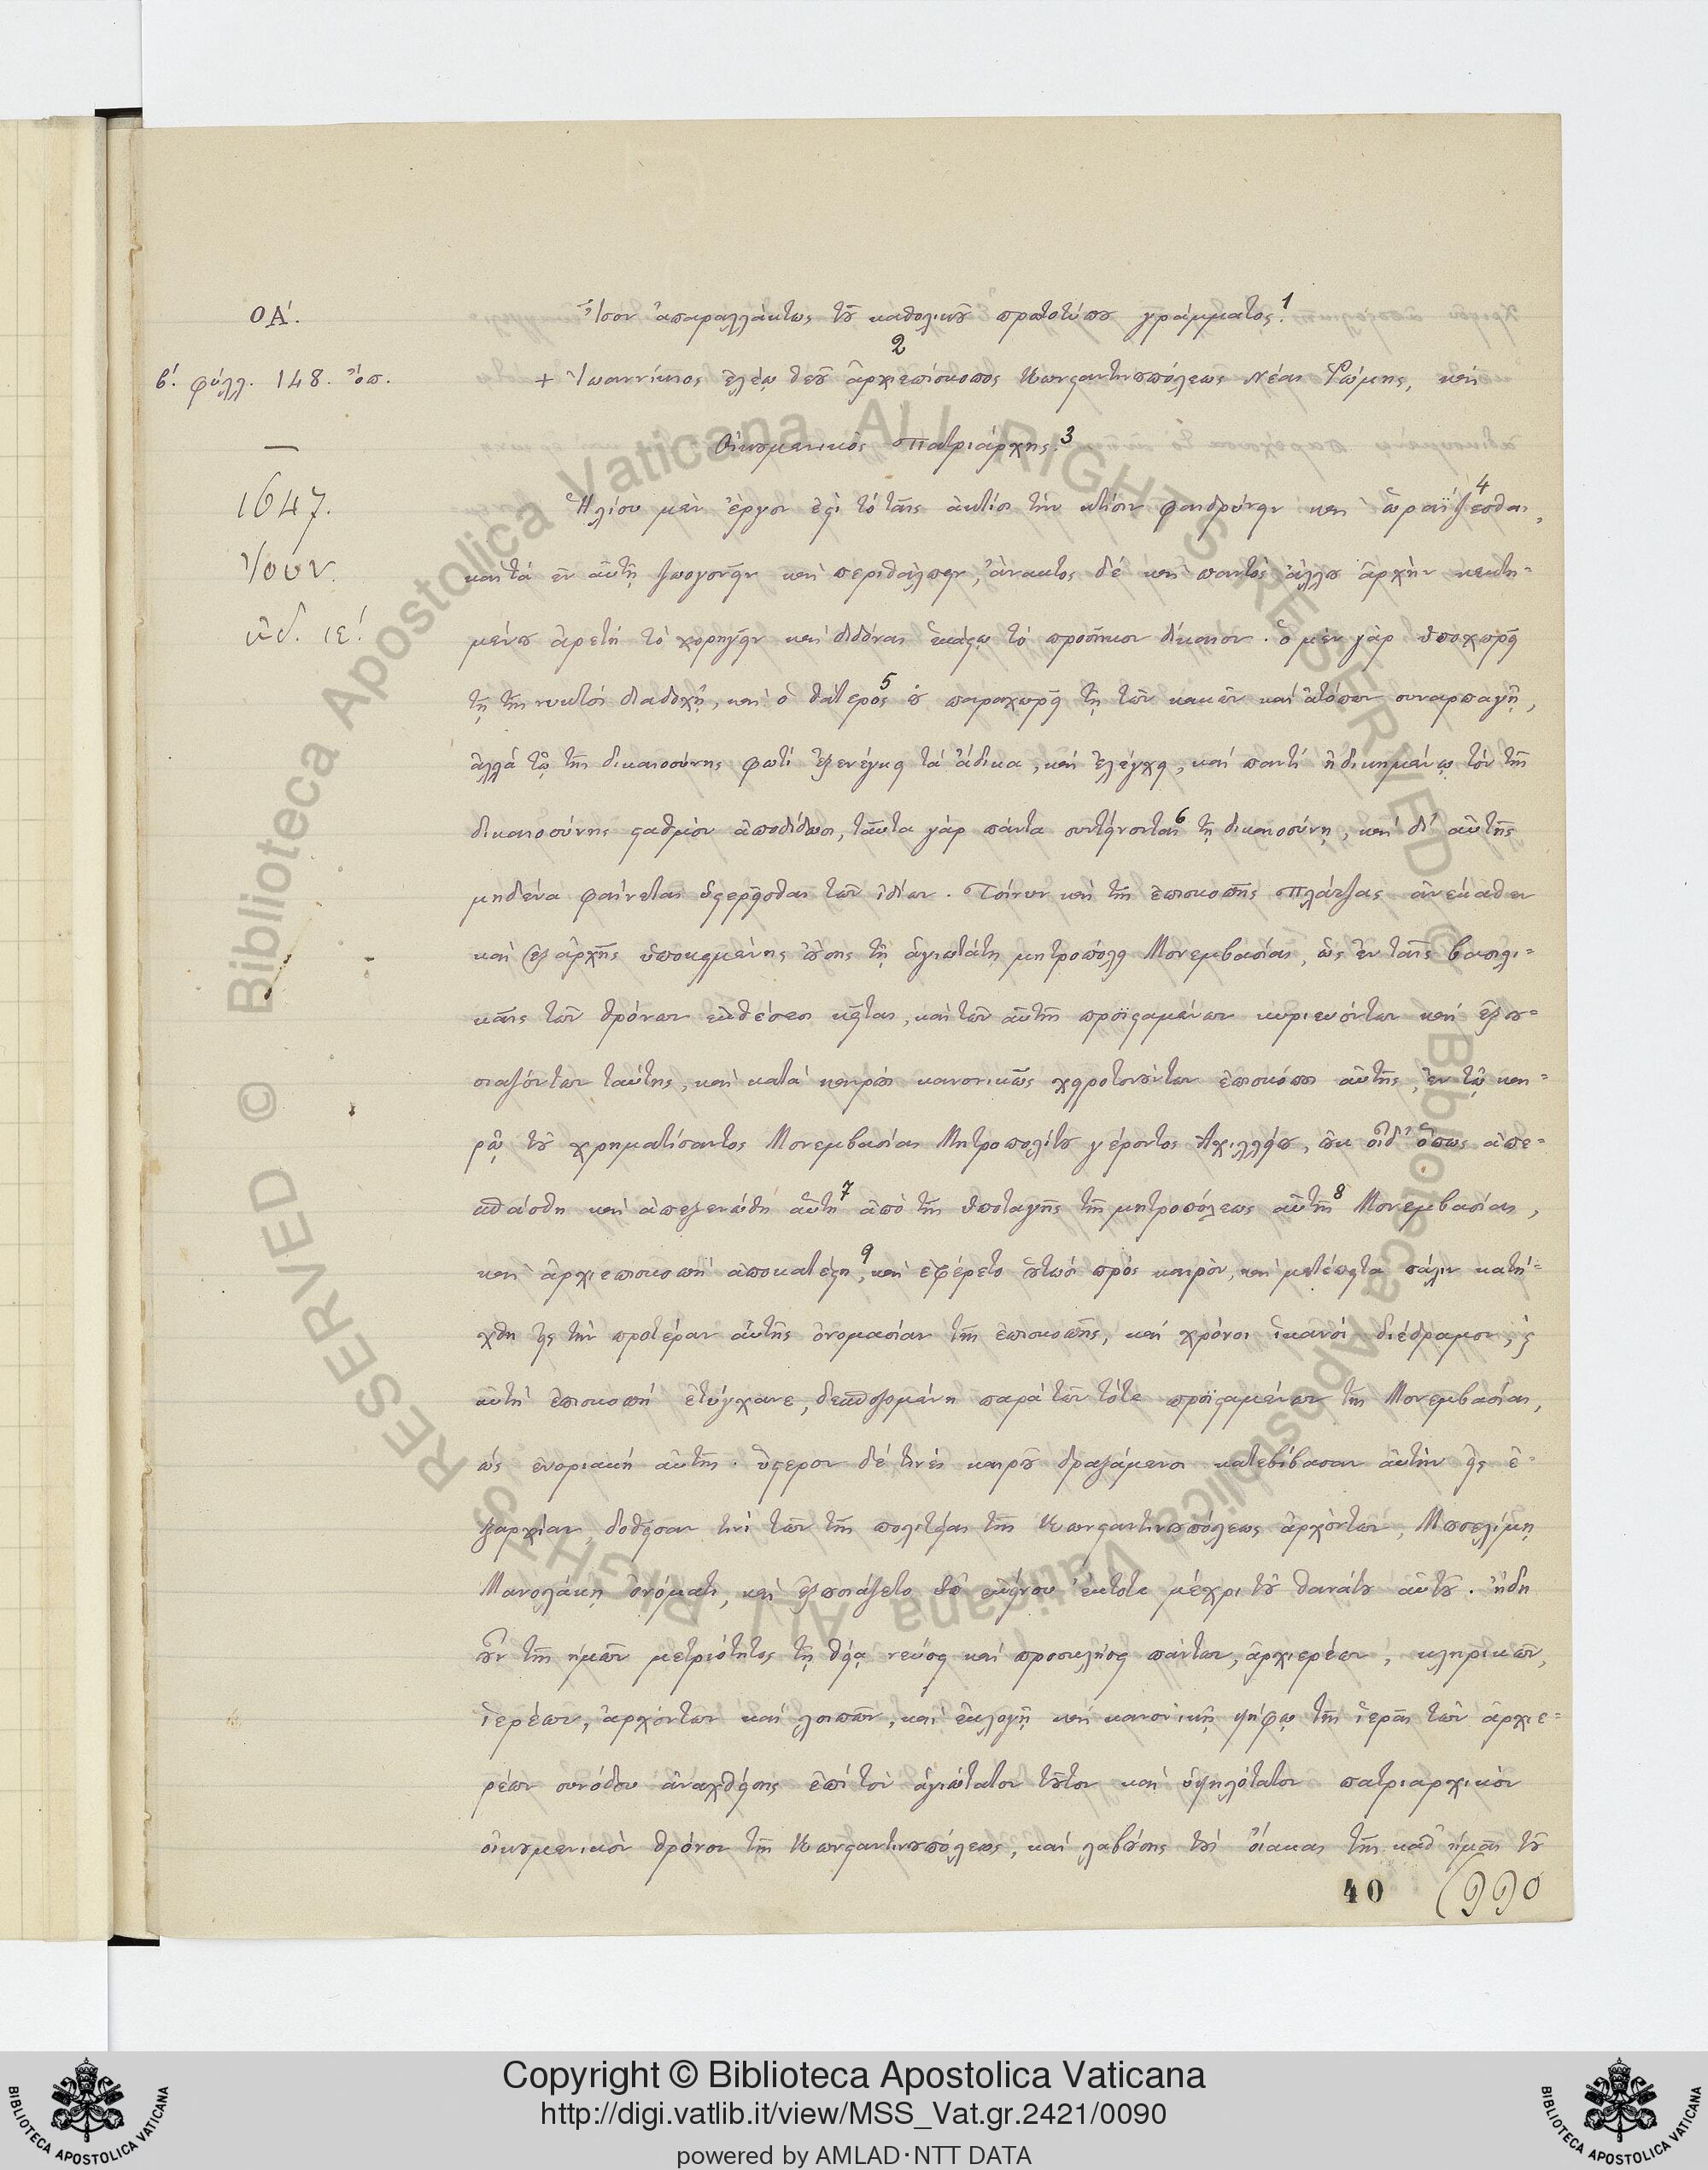 ΟΑ΄.
β΄. φύλλ. 148. ὄπ.
1647.
Ἰουν.
ἰνδ. ιε΄.
Ἴσον ἀπαραλλάκτως τȣ͂ καθολικȣ͂ πρωτοτύπȣ γράμματος.1
2
+ Ἰωαννίκιος ἐλέῳ θεȣ͂ ἀρχιεπίσκοπος Κωνϛαντινȣπόλεως Νέας Ῥώμης, καὶ
Οἰκȣμενικὸς Πατριάρχης.3
Ἡλίου μὲν ἔργον ἐϛὶ τὸ ταῖς ἀκτῖσι τὴν κτίσιν φαιδρύνειν καὶ ὡραΐζεσθαι4,
καὶ τὰ ἐν αὐτῇ ζωογονεῖν καὶ περιθάλπειν, ἄνακτος δὲ καὶ παντὸς ἄλλȣ ἀρχὴν κεκτη-
μένȣ ἀρετὴ τὸ χορηγεῖν καὶ διδόναι ἑκάϛῳ τὸ προσῆκον δίκαιον. ὁ μὲν γὰρ ὑποχωρεῖ
τῇ τῆς νυκτὸς διαδοχῇ, καὶ ὁ θάτερος5 ȣ̓ παραχωρεῖ τῇ τῶν κακῶν καὶ ἀτόπων συναρπαγῇ,
ἀλλὰ τῷ τῆς δικαιοσύνης φωτὶ ἐξενέγκει τὰ ἄδικα, καὶ ἐλέγχει, καὶ παντὶ ἠδικημένῳ τὸν τῆς
δικαιοσύνης ϛαθμὸν ἀποδίδωσι, ταῦτα γὰρ πάντα συντείνονται6 τῇ δικαιοσύνῃ, καὶ δι᾽ αὐτῆς
μηδένα φαίνεται ὑϛερεῖσθαι τῶν ἰδίων. Τοίνυν καὶ τῆς ἐπισκοπῆς Πλάτζας ἀνέκαθεν
καὶ ἐξ ἀρχῆς ὑποκειμένης ȣ̓́σης τῇ ἁγιωτάτῃ μητροπόλει Μονεμβασίας, ὡς ἐν ταῖς βασιλι-
καῖς τῶν θρόνων ἐκθέσεσι κεῖται, καὶ τῶν αὐτῆς προϊϛαμένων κυριευόντων καὶ ἐξȣ-
σιαζόντων ταύτης, καὶ κατὰ καιρὸν κανονικῶς χειροτονȣ́ντων ἐπισκόπȣς αὐτῆς, ἐν τῷ και-
ρῷ τȣ͂ χρηματίσαντος Μονεμβασίας Μητροπολίτȣ γέροντος Ἀχιλλείȣ, ȣ̓κ οἶδ᾽ ὅπως ἀπε-
σπάσθη καὶ ἀπεξενώθη αὕτη7 ἀπὸ τῆς ὑποταγῆς τῆς μητροπόλεως αὐτῆς8 Μονεμβασίας,
καὶ ἀρχιεπισκοπὴ ἀποκατέϛη9, καὶ ἐφέρετο ȣ̔τωσὶ πρὸς καιρὸν, καὶ μετέπειτα πάλιν κατή-
χθη εἰς τὴν προτέραν αὐτῆς ὀνομασίαν τῆς ἐπισκοπῆς, καὶ χρόνοι ἱκανοὶ διέδραμον, ϛ
αὐτὴ ἐπισκοπὴ ἐτύγχανε, δεσποζομένη παρὰ τῶν τότε προϊϛαμένων τῆς Μονεμβασίας,
ὡς ἐνοριακὴ αὐτῆς. ὕϛερον δέ τινες καιρȣ͂ δραξάμενοι κατεβίβασαν αὐτὴν εἰς ἐ-
ξαρχίαν, δοθεῖσαν τινὶ τῶν τῆς πολιτείας τῆς Κωνϛαντινȣπόλεως ἀρχόντων, Μπσελίμῃ
Μανολάκῃ ὀνόματι, καὶ ἐξȣσιάζετο ὑπ᾽ ἐκείνου ἔκτοτε μέχρι τȣ͂ θανάτȣ αὐτȣ͂. ἤδη
ȣ̓͂ν τῆς ἡμῶν μετριότητος τῇ θείᾳ νεύσει καὶ προσκλήσει πάντων, ἀρχιερέων, κληρικῶν,
ἱερέων, ἀρχόντων καὶ λοιπῶν, καὶ ἐκλογῇ καὶ κανονικῇ ψήφῳ τῆς ἱερᾶς τῶν ἀρχιε-
ρέων συνόδου ἀναχθείσης ἐπὶ τὸν ἁγιώτατον τȣ͂τον καὶ ὑψηλότατον πατριαρχικὸν
οἰκȣμενικὸν θρόνον τῆς Κωνϛαντινȣπόλεως, καὶ λαβȣ́σης τȣ̀ς οἴακας τῆς καθ᾽ ἡμᾶς τȣ͂
40
Copyright © Biblioteca Apostolica Vaticana
http://digi.vatlib.it/view/MSS_Vat.gr.2421/0090
powered by AMLAD·NTT DATA
BIBLIOTECA APOSTOLICA VATICANA
BIBLIOTECA APOSTOLICA VATICANA
© Biblioteca Apostolica Vaticana ALL RIGHTS RESERVED
© Biblioteca Apostolica Vaticana ALL RIGHTS RESERVED